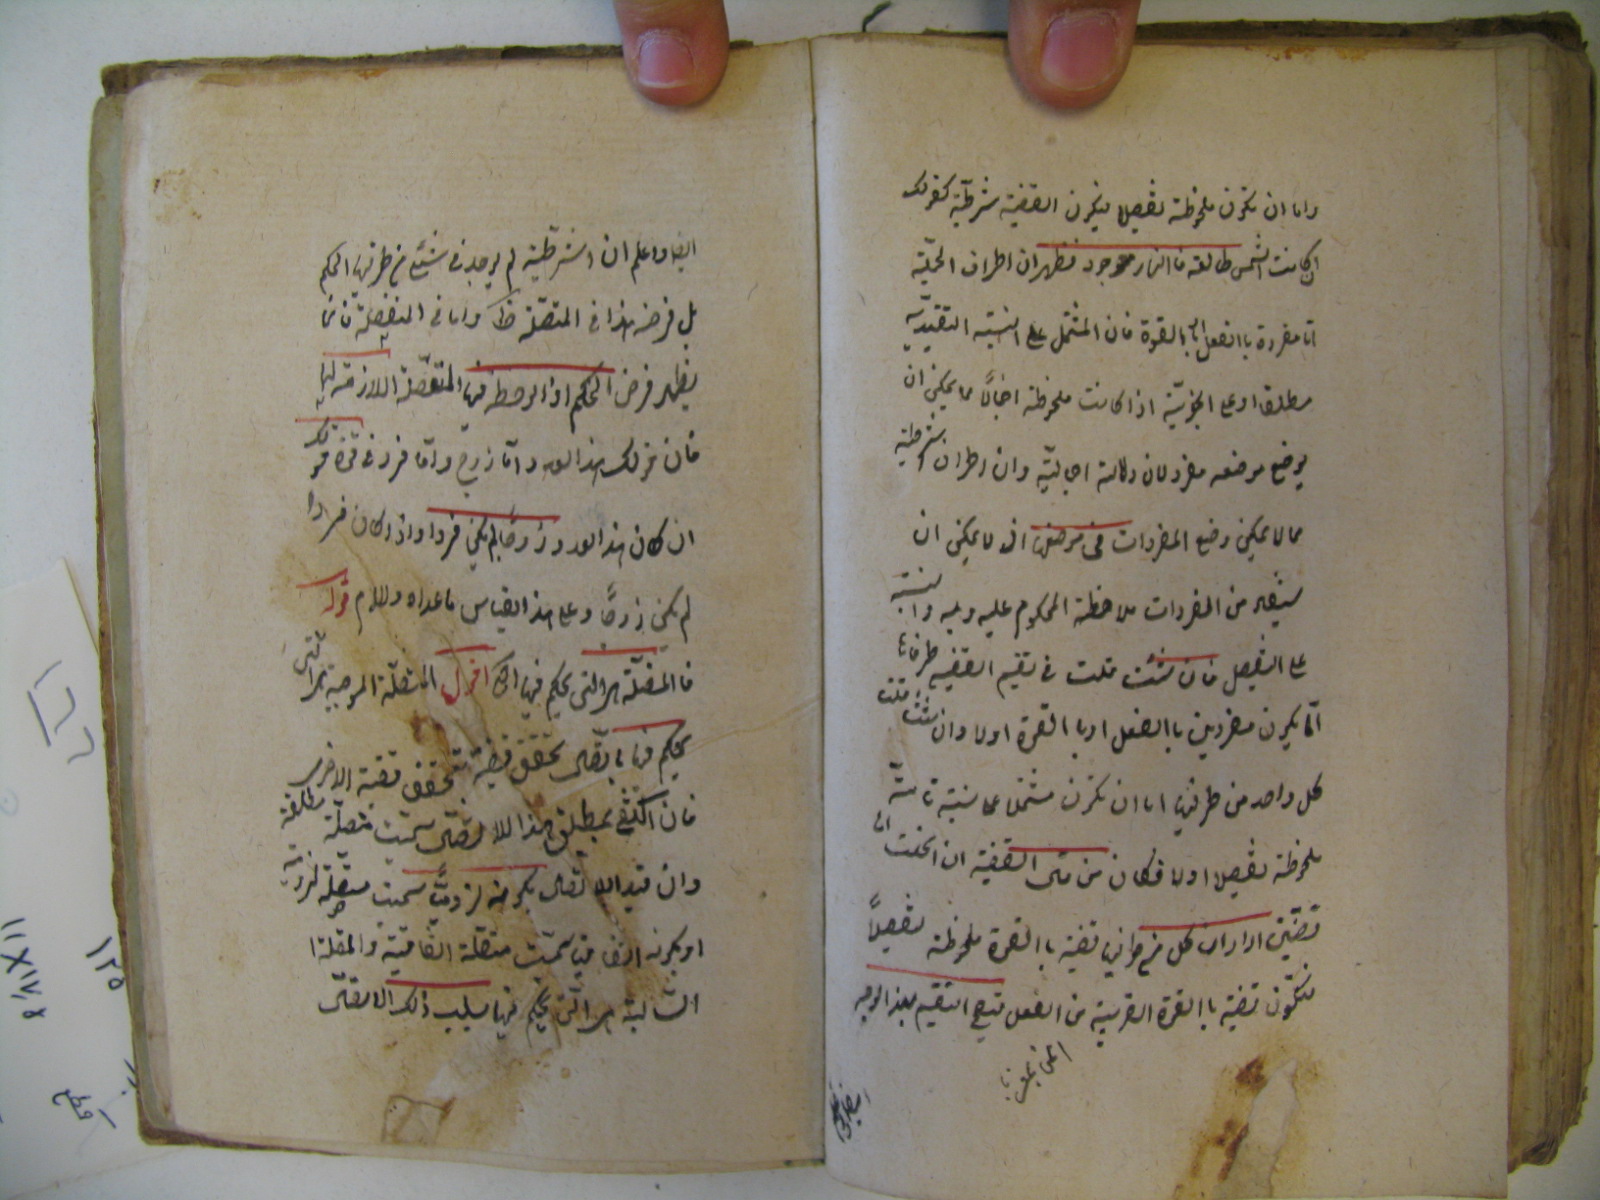 واما ان تكون ملحوظة تفصيلا فيكون القضية شرطية كقولك
ان كانت الشمس طالعة فالنهار موجود فظهر ان اطراف الحملية
اما مفردة بالفعل او بالقوة فان المشتمل على النسبة التقييدية
مطلقا او على الخبرية اذا كانت ملحوظة اجمالا مما يمكن ان
يوضع موضعه مفرد لان دلالته اجمالية وان اطراف الشرطية
مما لا يمكن وضع المفردات في موضعها اذ لا يمكن ان
يستفاد من المفردات ملاحظة المحكوم عليه وبه والنسبة
على التفصيل فان شئت قلت في تقسيم القضية طرفاها
اما يكون مفردين بالفعل او بالقوة اولا وان شئت قلت
كل واحد من طرفيها اما ان تكون مشتملا على نسبة تامة
ملحوظة تفصيلا اولا فكان من قال القضية ان انحلت الى
قضيتين اراد ان كل من قضية بالقوة ملحوظة تفصيلاً
فتكون قضية بالقوة القريبة من الفعل فتصح التقسيم بهذا الوجه
ايضا واعلم ان الشرطية لم يوجد في شيء من طرفيها الحكم
بل فرضه هذا في المتصلة ظ واما في المنفصلة فانما
يظهر فرض الحكم اذا لوحظ فيها المتصلة اللازمة لها
فان قولك هذا العدد اما زوج واما فرد في قوة قولك
ان كان هذا العدد زوجا لم يكن فردا واذا كان فردا
لم يكن زوجا وعلى هذا القياس ما عداه والسلام قوله
فالمتصلة هي التي يحكم فيها الخ اقول المتصلة الموجبة هي التي
يحكم فيها باتصال تحقق قضية بتحقق قضية الاخرى
فان اكتفى بمطلق هذا الاتصال سميت متصلة مطلقة
وان قيد الاتصال بكونه لزوميا سميت متصلة لزومية
او بكونه اتفاقيا سميت متصلة اتفاقية والمتصلة
السالبة هي التي يحكم فيها بسلب ذلك الاتصال
١٢٥